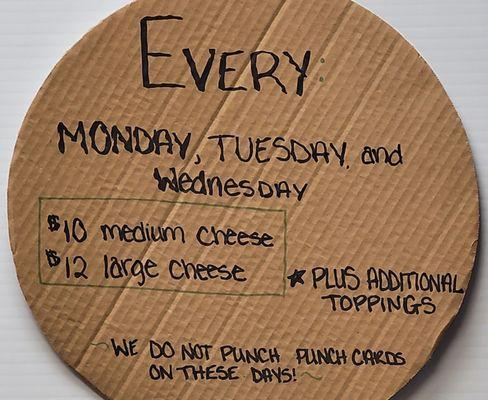 EVERY:
MONDAY, TUESDAY, and
WednesDAY
$10 medium cheese
$12 large cheese
* PLUS ADDITIONAL
TOPPINGS
~WE DO NOT PUNCH PUNCH CARDS
ON THESE DAYS!~